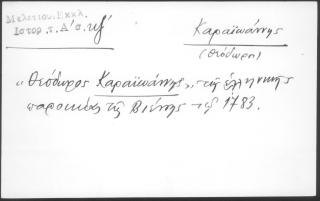 Μελετίου. Εκκλ.
Ιστορ. τ. Α' σ. κξ'
Καραϊωάννης
(Θεόδωρος)
"Θεόδωρος Καραϊωάννης", τῆς ἑλληνικῆς
παροικίας τῆς Βιέννης τῷ 1783.